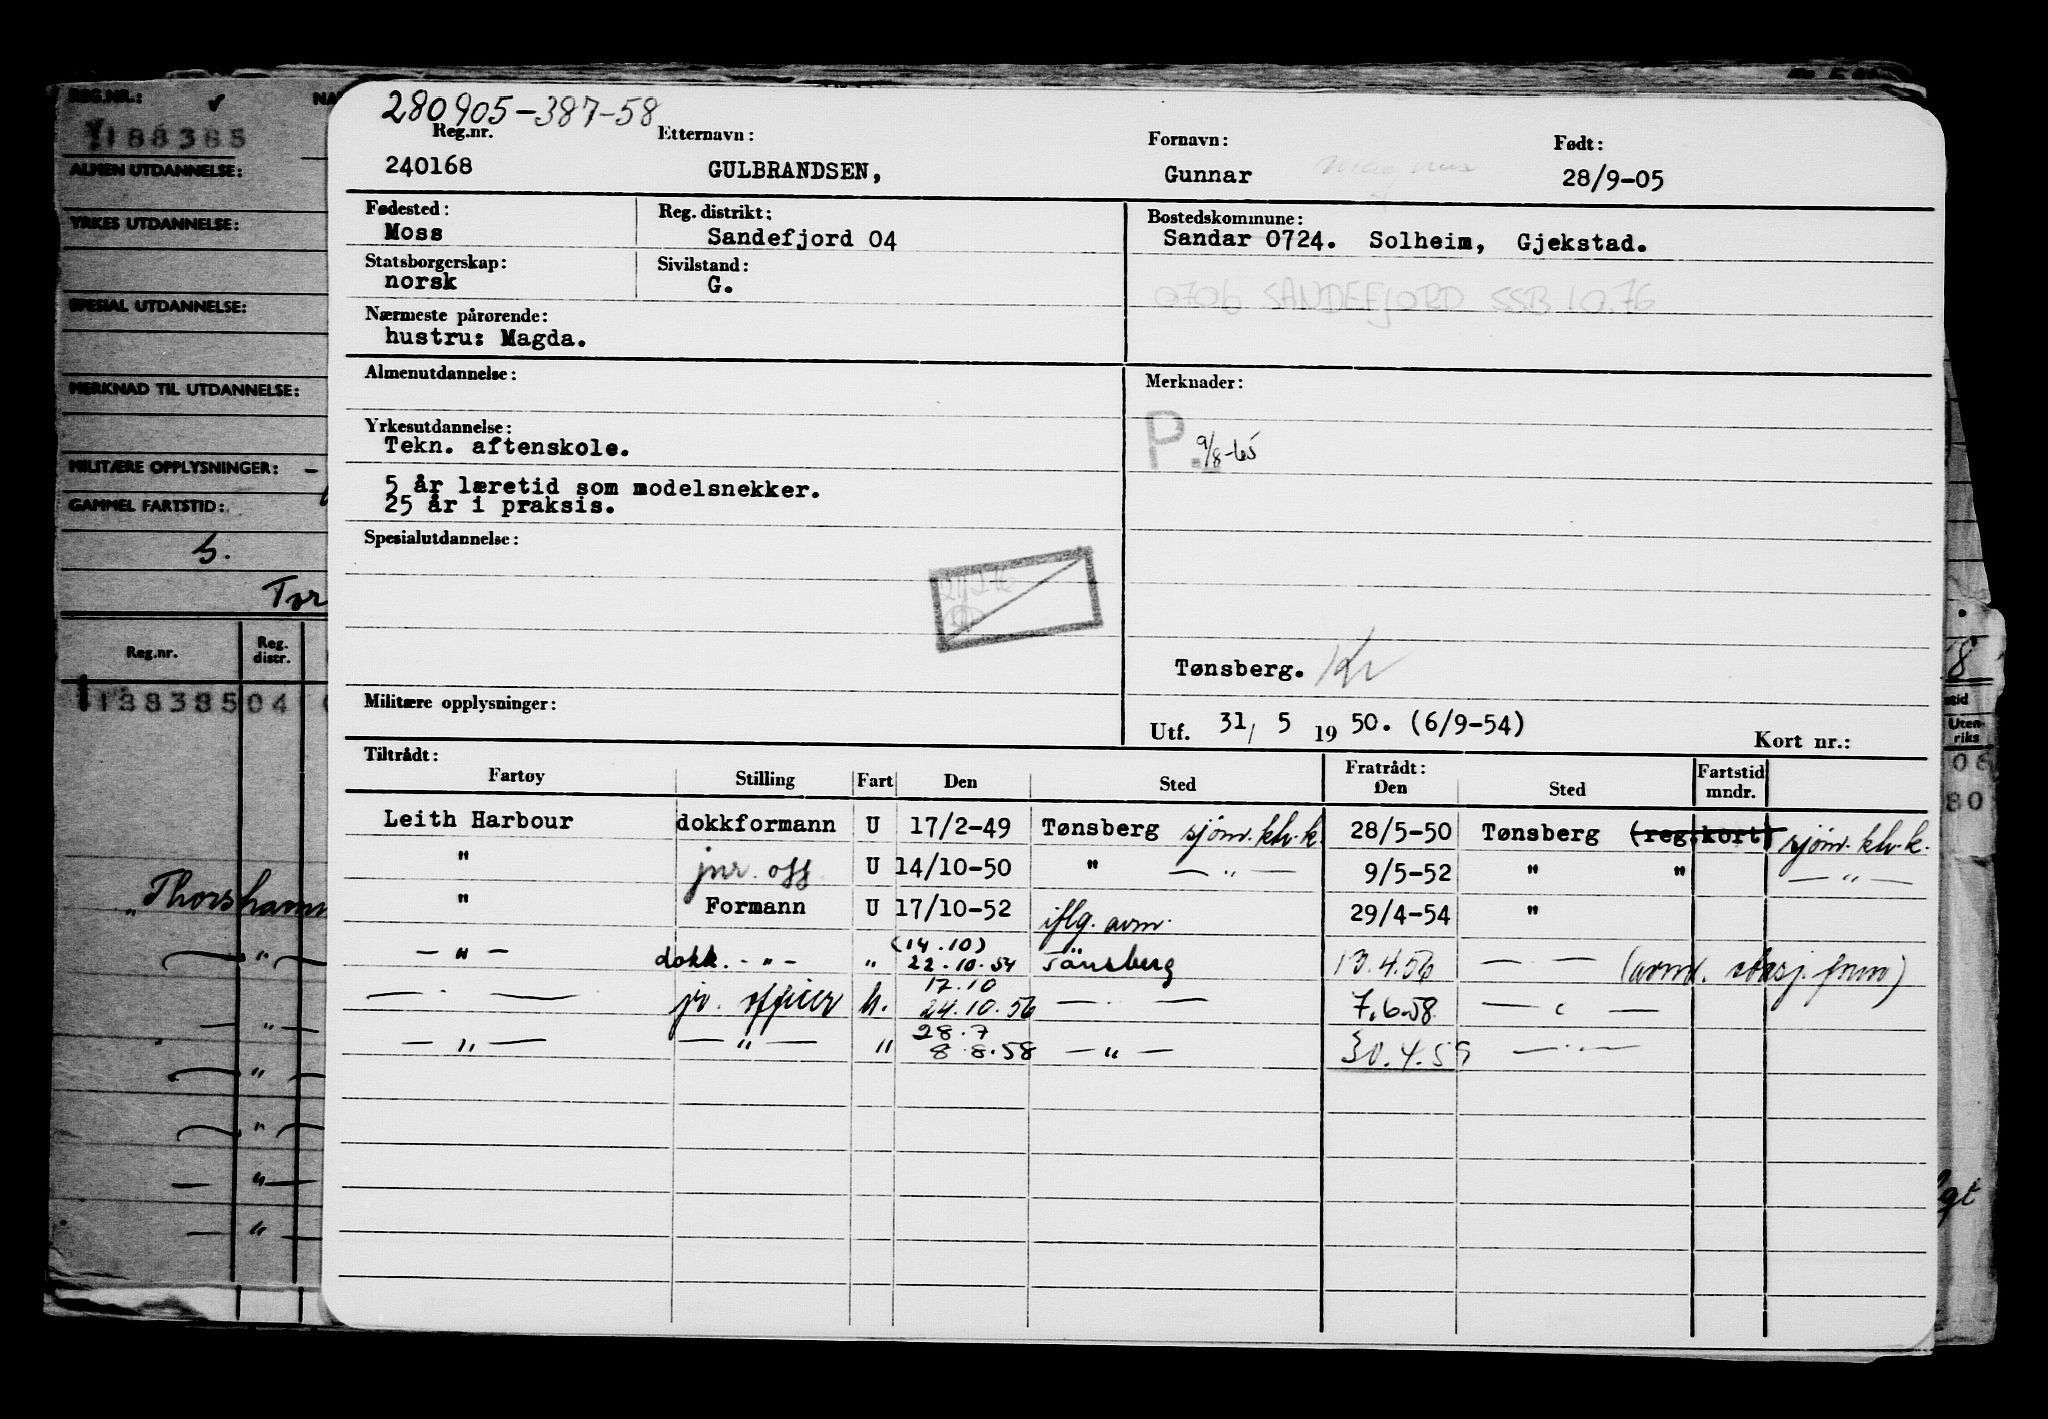 280905-387-58
Reg.nr. Etternavn: Fornavn: Født:
240168 GULBRANDSEN, Gunnar Magnus 28/9-05
Fødested: Reg. distrikt: Bostedskommune:
Moss Sandefjord 04 Sandar 0724. Solheim, Gjekstad.
Statsborgerskap: Sivilstand:
norsk G.
0706 SANDEFJORD SSB 10.76
Nærmeste pårørende:
hustru: Magda.
Almenutdannelse: Merknader:
Yrkesutdannelse:
Tekn. aftenskole.
P. 9/8-65
5 år læretid som modelsnekker.
25 år i praksis.
Spesialutdannelse:
Tønsberg. Kr
Militære opplysninger:
Utf. 31/ 5 19 50. (6/9-54) Kort nr.:
Tiltrådt: Fratrådt:
Fartøy Stilling Fart Den Sted Den Sted Fartstid mndr.
Leith Harbour dokkformann U 17/2-49 Tønsberg sjöm. ktr. k. 28/5-50 Tønsberg (reg.kort) sjöm. ktr. k.
" jnr off U 14/10-50 " — " — 9/5-52 " " — " —
" Formann U 17/10-52 iflg. avm. 29/4-54 "
(14.10)
— " — dokk. - " - " 22.10.54 Tönsberg 13.4.56 — . — (avm.
17.10
— . — jr. officer u. 24.10.56 — . — 7.6.58. — " —
28.7
— " — — " — " 8.8.58 — " — 30.4.59 — . —
REG.NR.:
188385
ALMEN UTDANNELSE:
YRKES UTDANNELSE:
SPESIAL UTDANNELSE:
MERKNAD TIL UTDANNELSE:
MILITÆRE OPPLYSNINGER: -
GAMMEL FARTSTID:
5.
Tør
Reg.nr. Reg. distr.
188385 04
Thorshamm
— " —
— " —
— " —
— " —
— " —
— " —
8
Uten-
riks
06
80